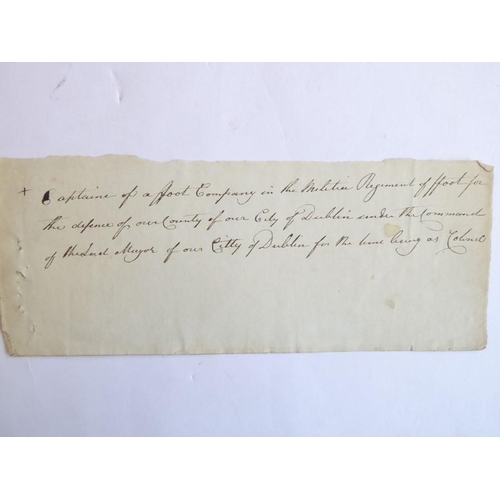 + Captaine of a ffoot Company in the Militia Regiment of ffoot for
the defence of our County of our City of Dublin under the Command
of the Lord Mayor of our Citty of Dublin for the time being as Colonel